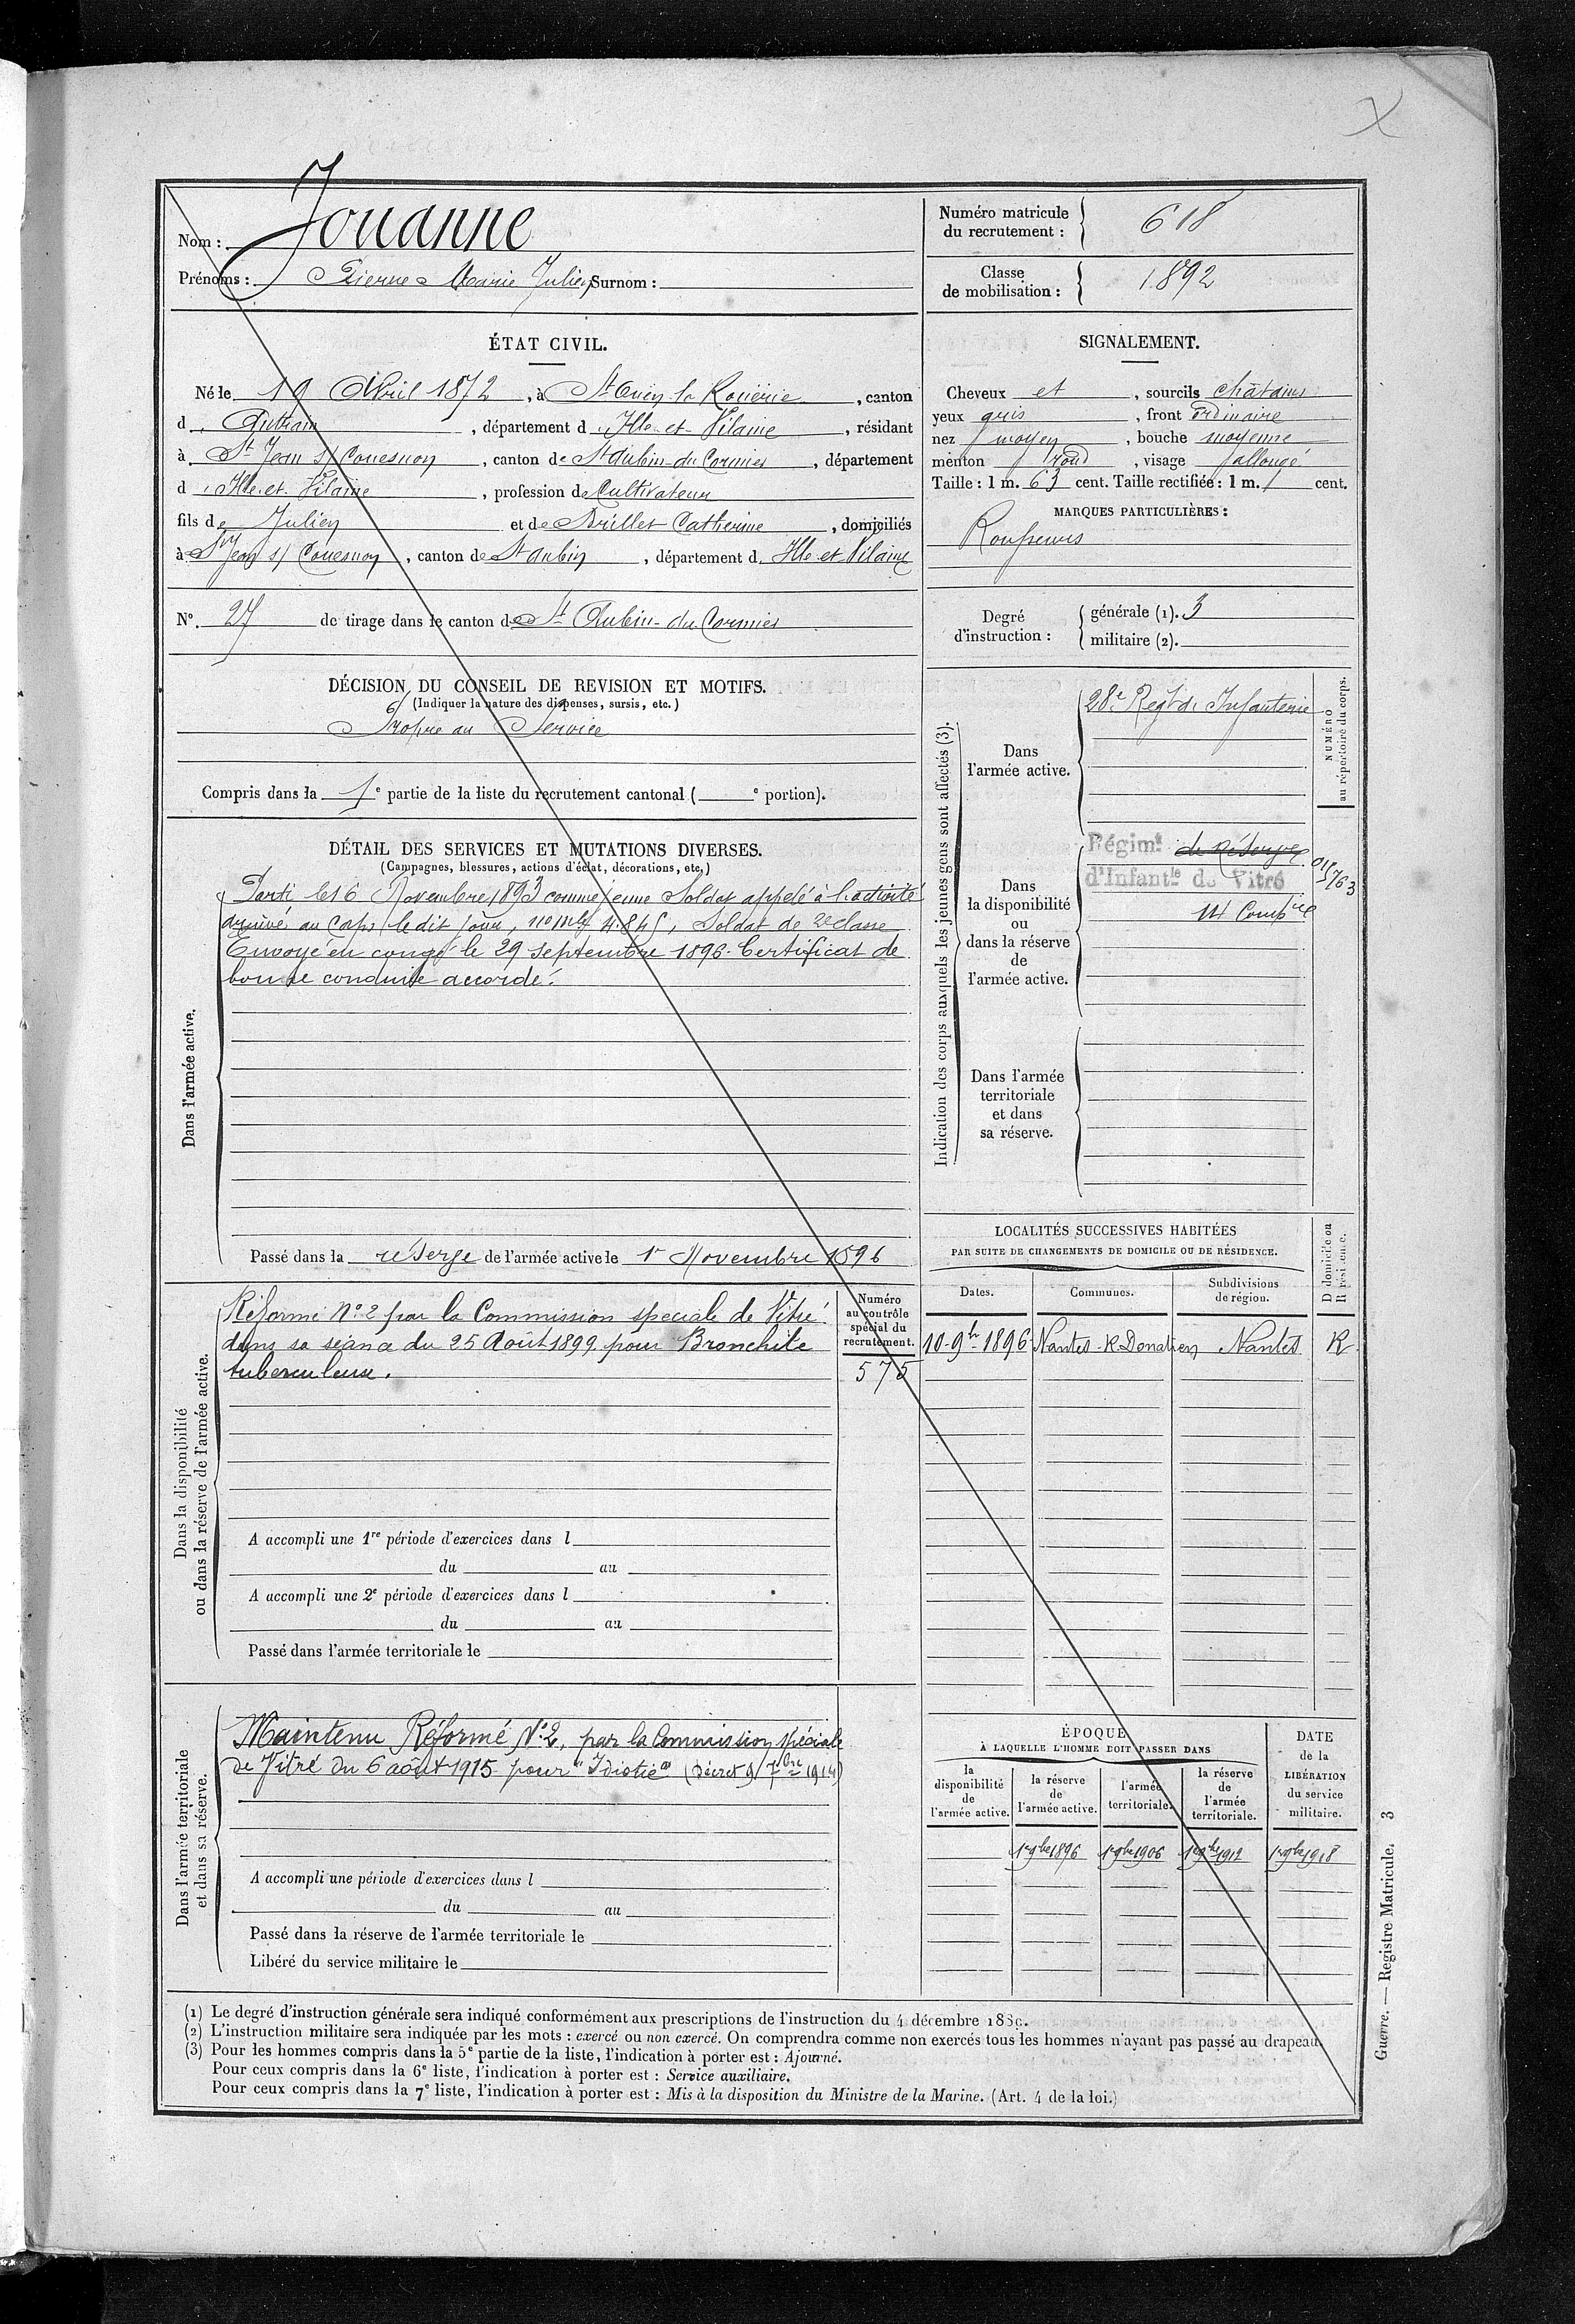 Nom : Jouanne
Prénoms : Pierre Marie Julien Surnom :
Numéro matricule du recrutement : 618
Classe de mobilisation : 1892
ÉTAT CIVIL.
Né le 19 Avril 1872, à St Ouen la Rouërie, canton
d'Antrain, département d'Ille-et-Vilaine, résidant
à St Jean s/ Couesnon, canton de St Aubin-du-Cormier, département
d'Ille-et-Vilaine, profession de Cultivateur
fils de Julien et de Brillet Catherine, domiciliés
à St Jean s/ Couesnon, canton de St Aubin, département d. Ille-et-Vilaine
N° 27 de tirage dans le canton de St Aubin-du-Cormier
SIGNALEMENT.
Cheveux et, sourcils châtains
yeux gris, front ordinaire
nez moyen, bouche moyenne
menton rond, visage allongé
Taille : 1 m. 63 cent. Taille rectifiée : 1 m. / cent.
MARQUES PARTICULIÈRES :
Degré d'instruction : générale (1). 3
militaire (2).
DÉCISION DU CONSEIL DE REVISION ET MOTIFS.
(Indiquer la nature des dispenses, sursis, etc.)
Propre au Service
Compris dans la 1e partie de la liste du recrutement cantonal ( e portion).
DÉTAIL DES SERVICES ET MUTATIONS DIVERSES.
(Campagnes, blessures, actions d'éclat, décorations, etc.)
Dans l'armée active.
Parti le 16 Novembre 1893 comme jeune Soldat appelé à l'activité
arrivé au Corps le dit jour, no mle 4.845, Soldat de 2e classe
Envoyé en congé le 29 septembre 1896. Certificat de
bonne conduite accordé.
Passé dans la réserve de l'armée active le 1r Novembre 1896
Dans la disponibilité
ou dans la réserve de l'armée active.
Réformé N°2 par la Commission spéciale de Vitré
dans sa séance du 25 Août 1899 pour Bronchite
tuberculeuse.
Numéro
au contrôle
spécial du
recrutement.
575
A accompli une 1re période d'exercices dans l
du au
A accompli une 2e période d'exercices dans l
du au
Passé dans l'armée territoriale le
Dans l'armée territoriale
et dans sa réserve.
Maintenu Réformé N°2, par la Commission spéciale
de Vitré du 6 août 1915 pour "Idiotie" (Décret 9 7bre 1914)
A accompli une période d'exercices dans l
du au
Passé dans la réserve de l'armée territoriale le
Libéré du service militaire le
Indication des corps auxquels les jeunes gens sont affectés (3).
NUMÉRO
au répertoire du corps.
Dans
l'armée active.
28e Regt di Infanterie
Dans
la disponibilité
ou
dans la réserve
de
l'armée active.
Régimt de Réserve
d'Infantie de Vitré
Dans l'armée
territoriale
et dans
sa réserve.
LOCALITÉS SUCCESSIVES HABITÉES
PAR SUITE DE CHANGEMENTS DE DOMICILE OU DE RÉSIDENCE.
D domicile ou
R résidence.
Dates. Communes. Subdivisions
de région.
10-9br-1896 Nantes R. Donatien Nantes R
ÉPOQUE
À LAQUELLE L'HOMME DOIT PASSER DANS
la
disponibilité
de
l'armée active.
la réserve
de
l'armée active.
l'armée
territoriale.
la réserve
de
l'armée
territoriale.
DATE
de la
LIBÉRATION
du service
militaire.
1er 9bre 1896 1er 9bre 1906 1er 9bre 1912 1er 9bre 1918
(1) Le degré d'instruction générale sera indiqué conformément aux prescriptions de l'instruction du 4 décembre 1889.
(2) L'instruction militaire sera indiquée par les mots : exercé ou non exercé. On comprendra comme non exercés tous les hommes n'ayant pas passé au drapeau.
(3) Pour les hommes compris dans la 5e partie de la liste, l'indication à porter est : Ajourné.
Pour ceux compris dans la 6e liste, l'indication à porter est : Service auxiliaire.
Pour ceux compris dans la 7e liste, l'indication à porter est : Mis à la disposition du Ministre de la Marine. (Art. 4 de la loi.)
Guerre. — Registre Matricule. 3